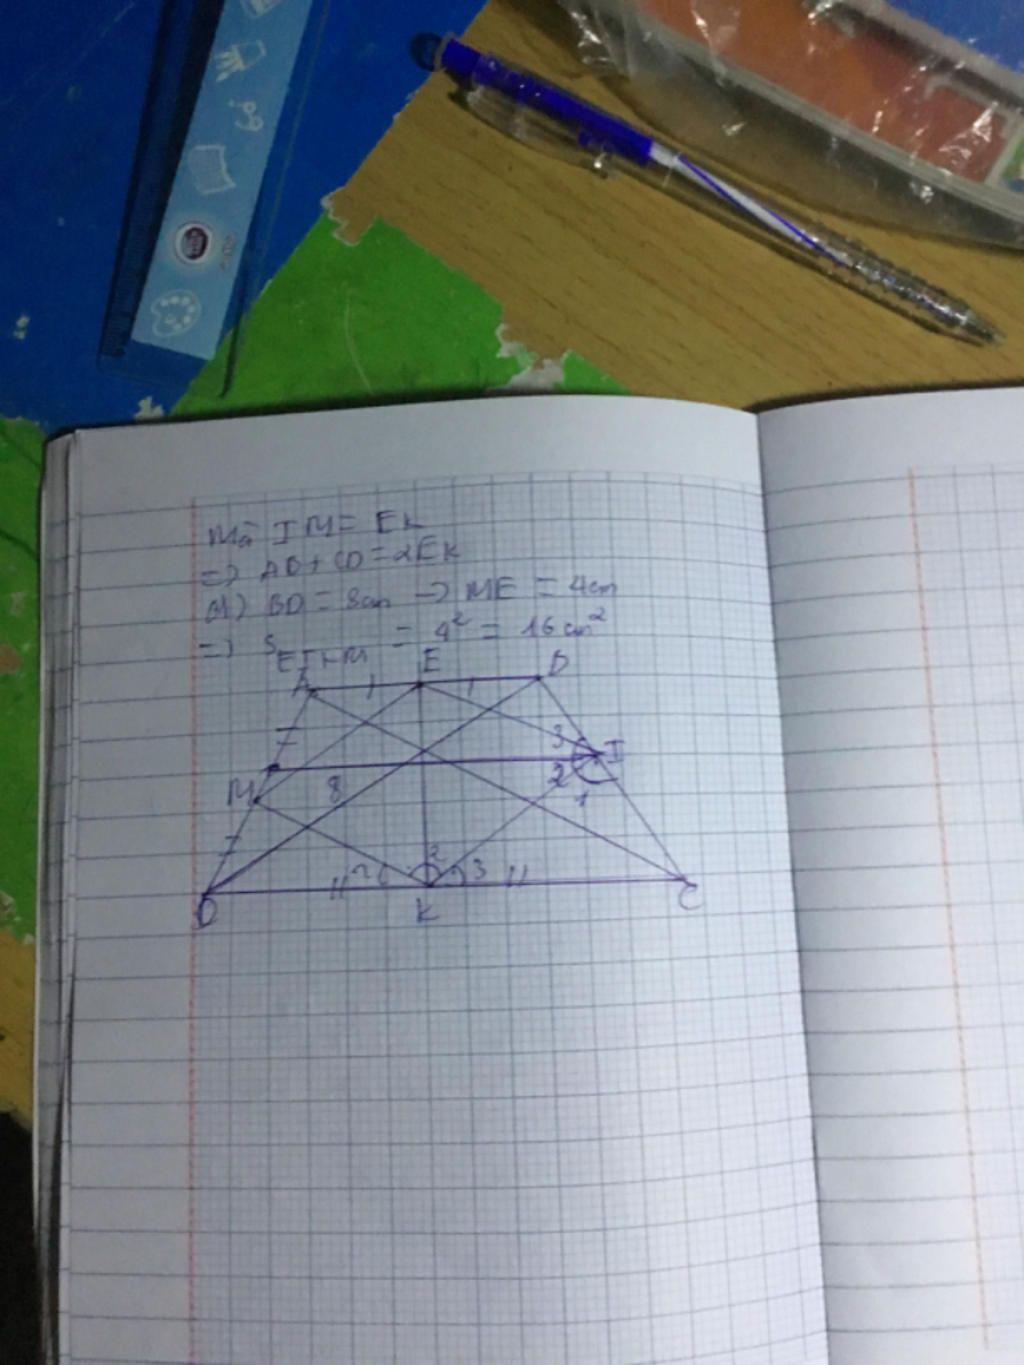 Mà IM = EK
=> AB + CD = 2EK
d) BD = 8cm -> ME = 4cm
=> S EIKM = 4² = 16 cm²
A E B
3 I
2
M 8 1
2 2 3
D K C